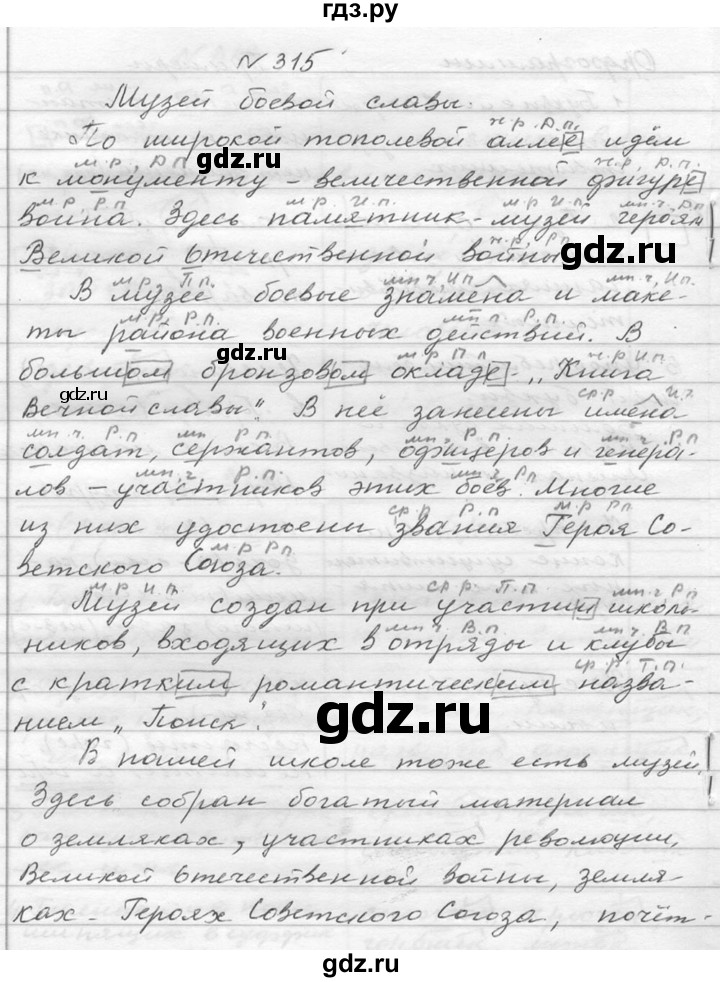 гдз.ру
N 315
Музей боевой славы.
По широкой тополевой аллее идём
к монументу – величественной фигуре
воина. Здесь памятник-музей героям
Великой Отечественной войны.
В музее боевые знамена и маке-
ты района военных действий. В
большом бронзовом окладе - „Книга
Вечной славы". В неё занесены имена
солдат, сержантов, офицеров и генера-
лов – участников этих боев. Многие
из них удостоены звания Героя Со-
ветского Союза.
Музей создан при участии школь-
ников, входящих в отряды и клубы
с кратким романтическим назва-
нием „Поиск".
В нашей школе тоже есть музей.
Здесь собран богатый материал
о земляках, участниках революции,
Великой Отечественной войны, земля-
ках - Героях Советского Союза, почёт-
gdz.ru